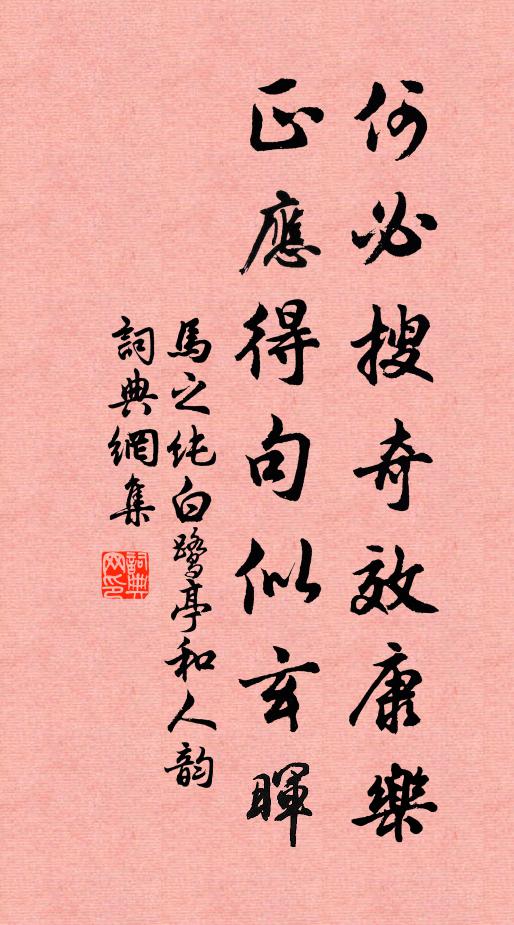 何必搜奇效康樂
正應得句似玄暉
馬之純白鷺亭和人韵
詞典網集
詞典網印